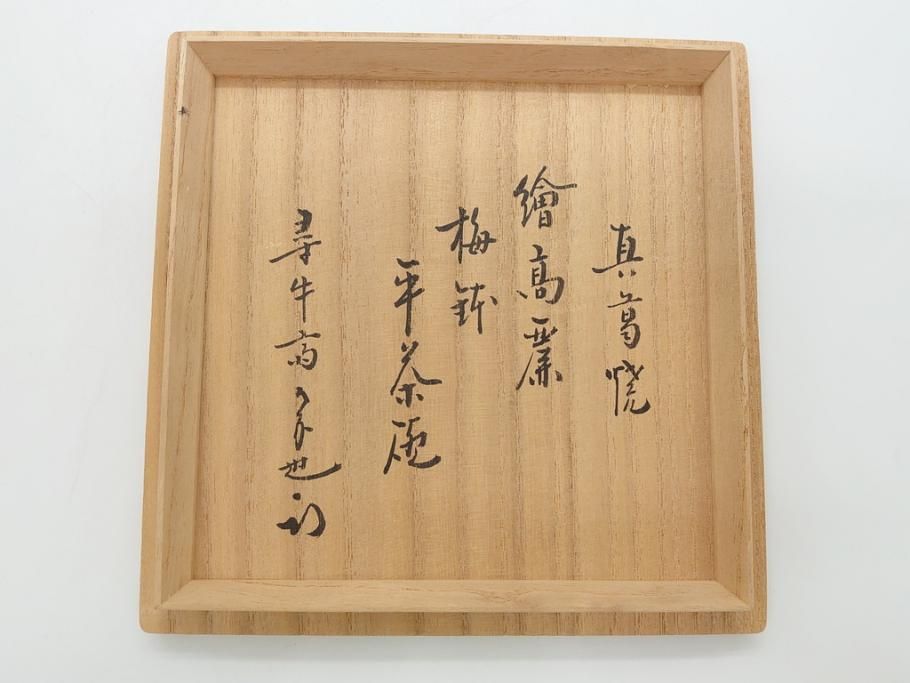 真葛焼
繪高麗
梅鉢
平茶碗
尋牛斎